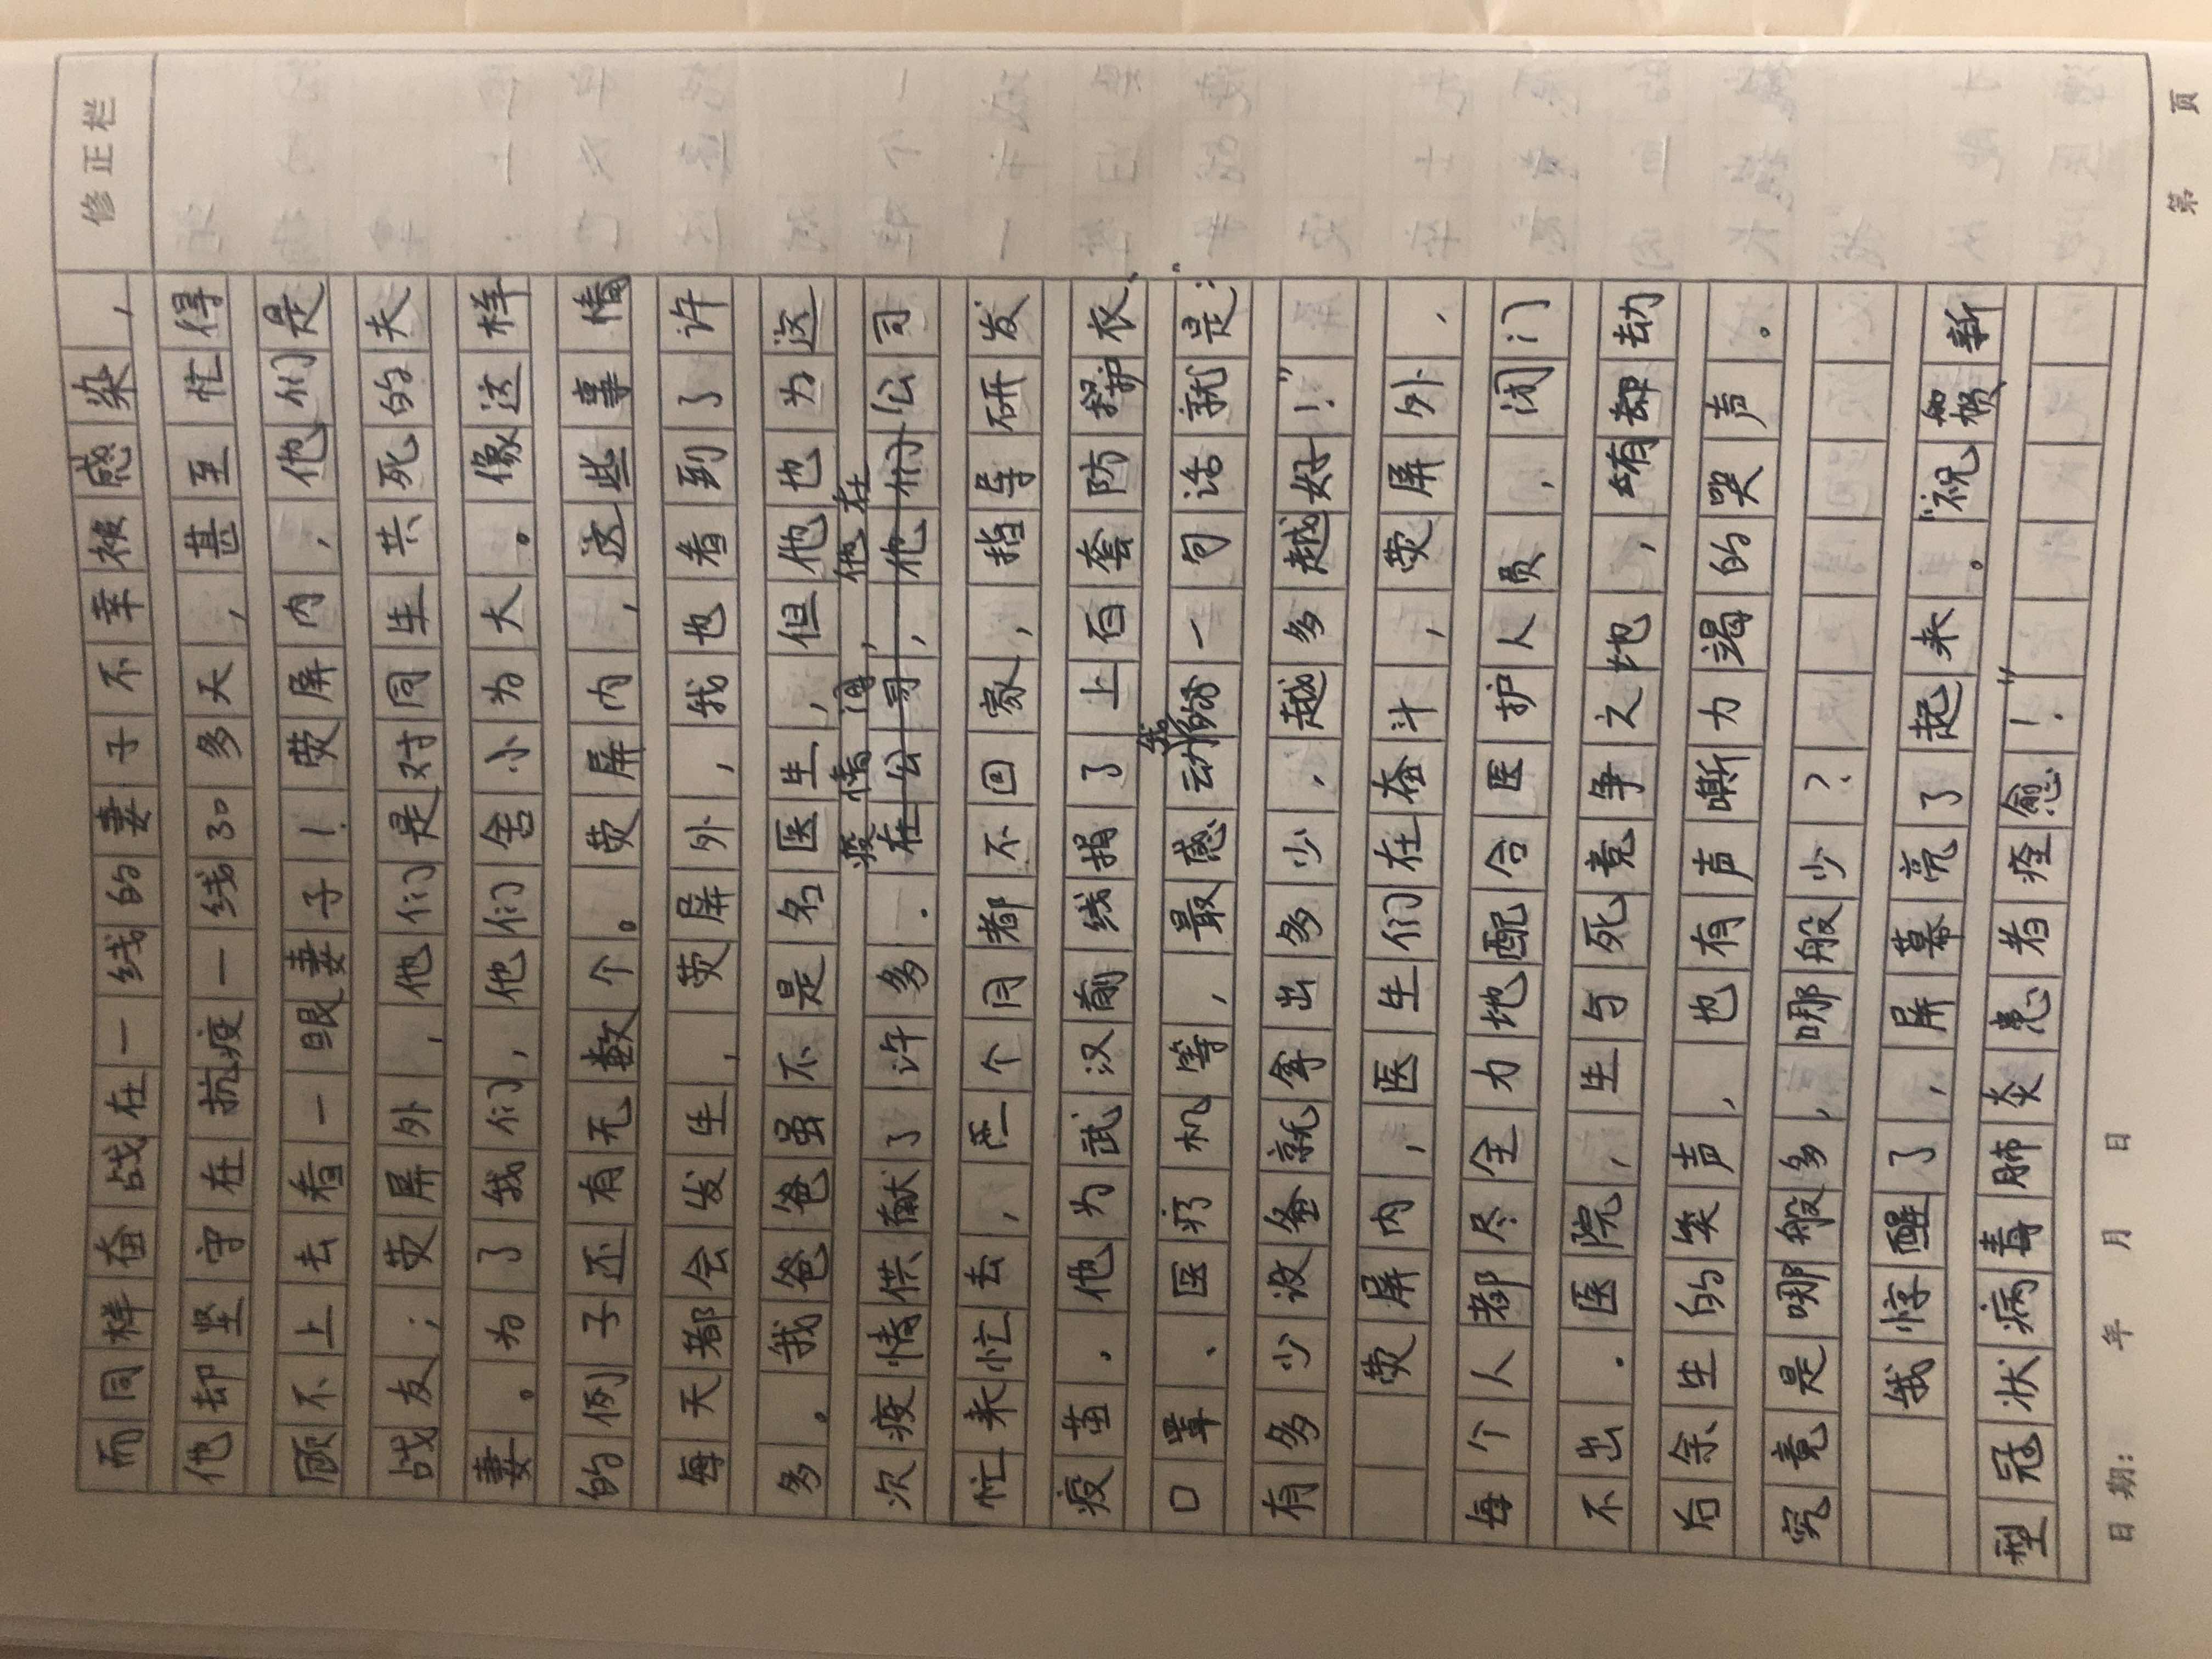 修正栏
而同样奋战在一线的妻子不幸被感染，
他却坚守在抗疫一线30多天，甚至忙得
顾不上去看一眼妻子！荧屏内，他们是
战友；荧屏外，他们是对同生共死的夫
妻。为了我们，他们舍小为大。像这样
的例子还有无数个。荧屏内，这些事情
每天都会发生，荧屏外，我也看到了许
多。我爸爸虽不是名医生，但他也为这
疫情得，他在
次疫情供献了许多．在公司，他们公司
忙来忙去，两个月都不回家，指导研发
疫苗．他为武汉前线捐了上百套防护衣、
我
口罩、医疗机等，最感动的一句话就是：
有多少设备就拿出多少，越多越好！”
荧屏内，医生们在奋斗，荧屏外，
每个人都尽全力地配合医护人员，闭门
不出．医院，生与死竞争之地，有劫
后余生的笑声，也有声嘶力竭的哭声。
究竟是哪般多，哪般少？
我惊醒了，屏幕亮了起来。“祝 新
型冠状病毒肺炎患者痊愈！”
日期： 年 月 日
第 页